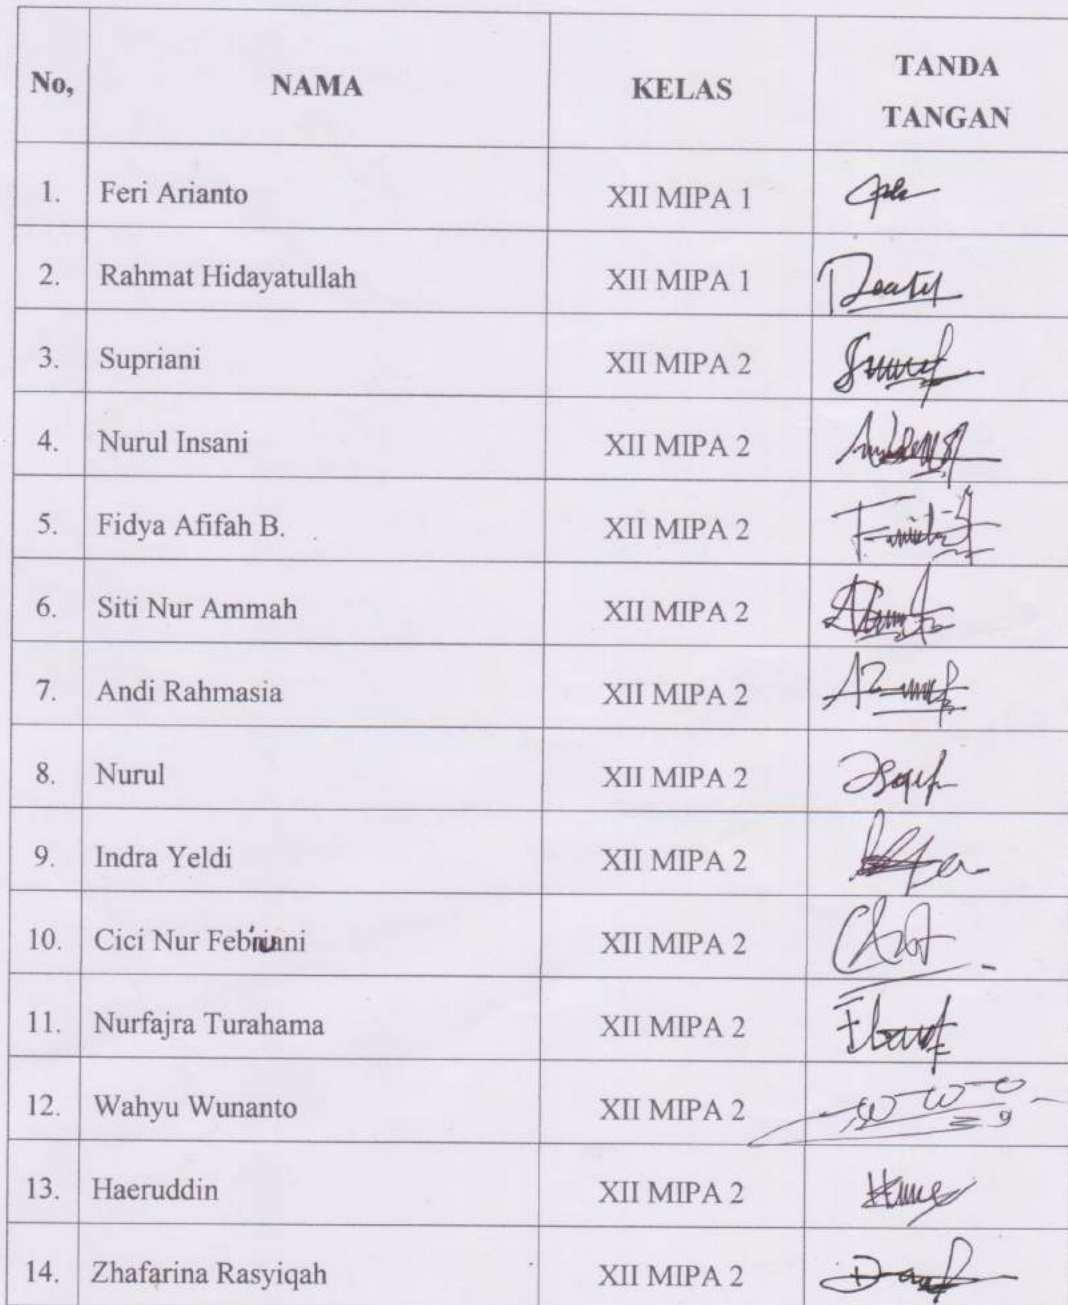 No, NAMA KELAS TANDA TANGAN
1. Feri Arianto XII MIPA 1
2. Rahmat Hidayatullah XII MIPA 1
3. Supriani XII MIPA 2
4. Nurul Insani XII MIPA 2
5. Fidya Afifah B. XII MIPA 2
6. Siti Nur Ammah XII MIPA 2
7. Andi Rahmasia XII MIPA 2
8. Nurul XII MIPA 2
9. Indra Yeldi XII MIPA 2
10. Cici Nur Febriani XII MIPA 2
11. Nurfajra Turahama XII MIPA 2
12. Wahyu Wunanto XII MIPA 2
13. Haeruddin XII MIPA 2
14. Zhafarina Rasyiqah XII MIPA 2